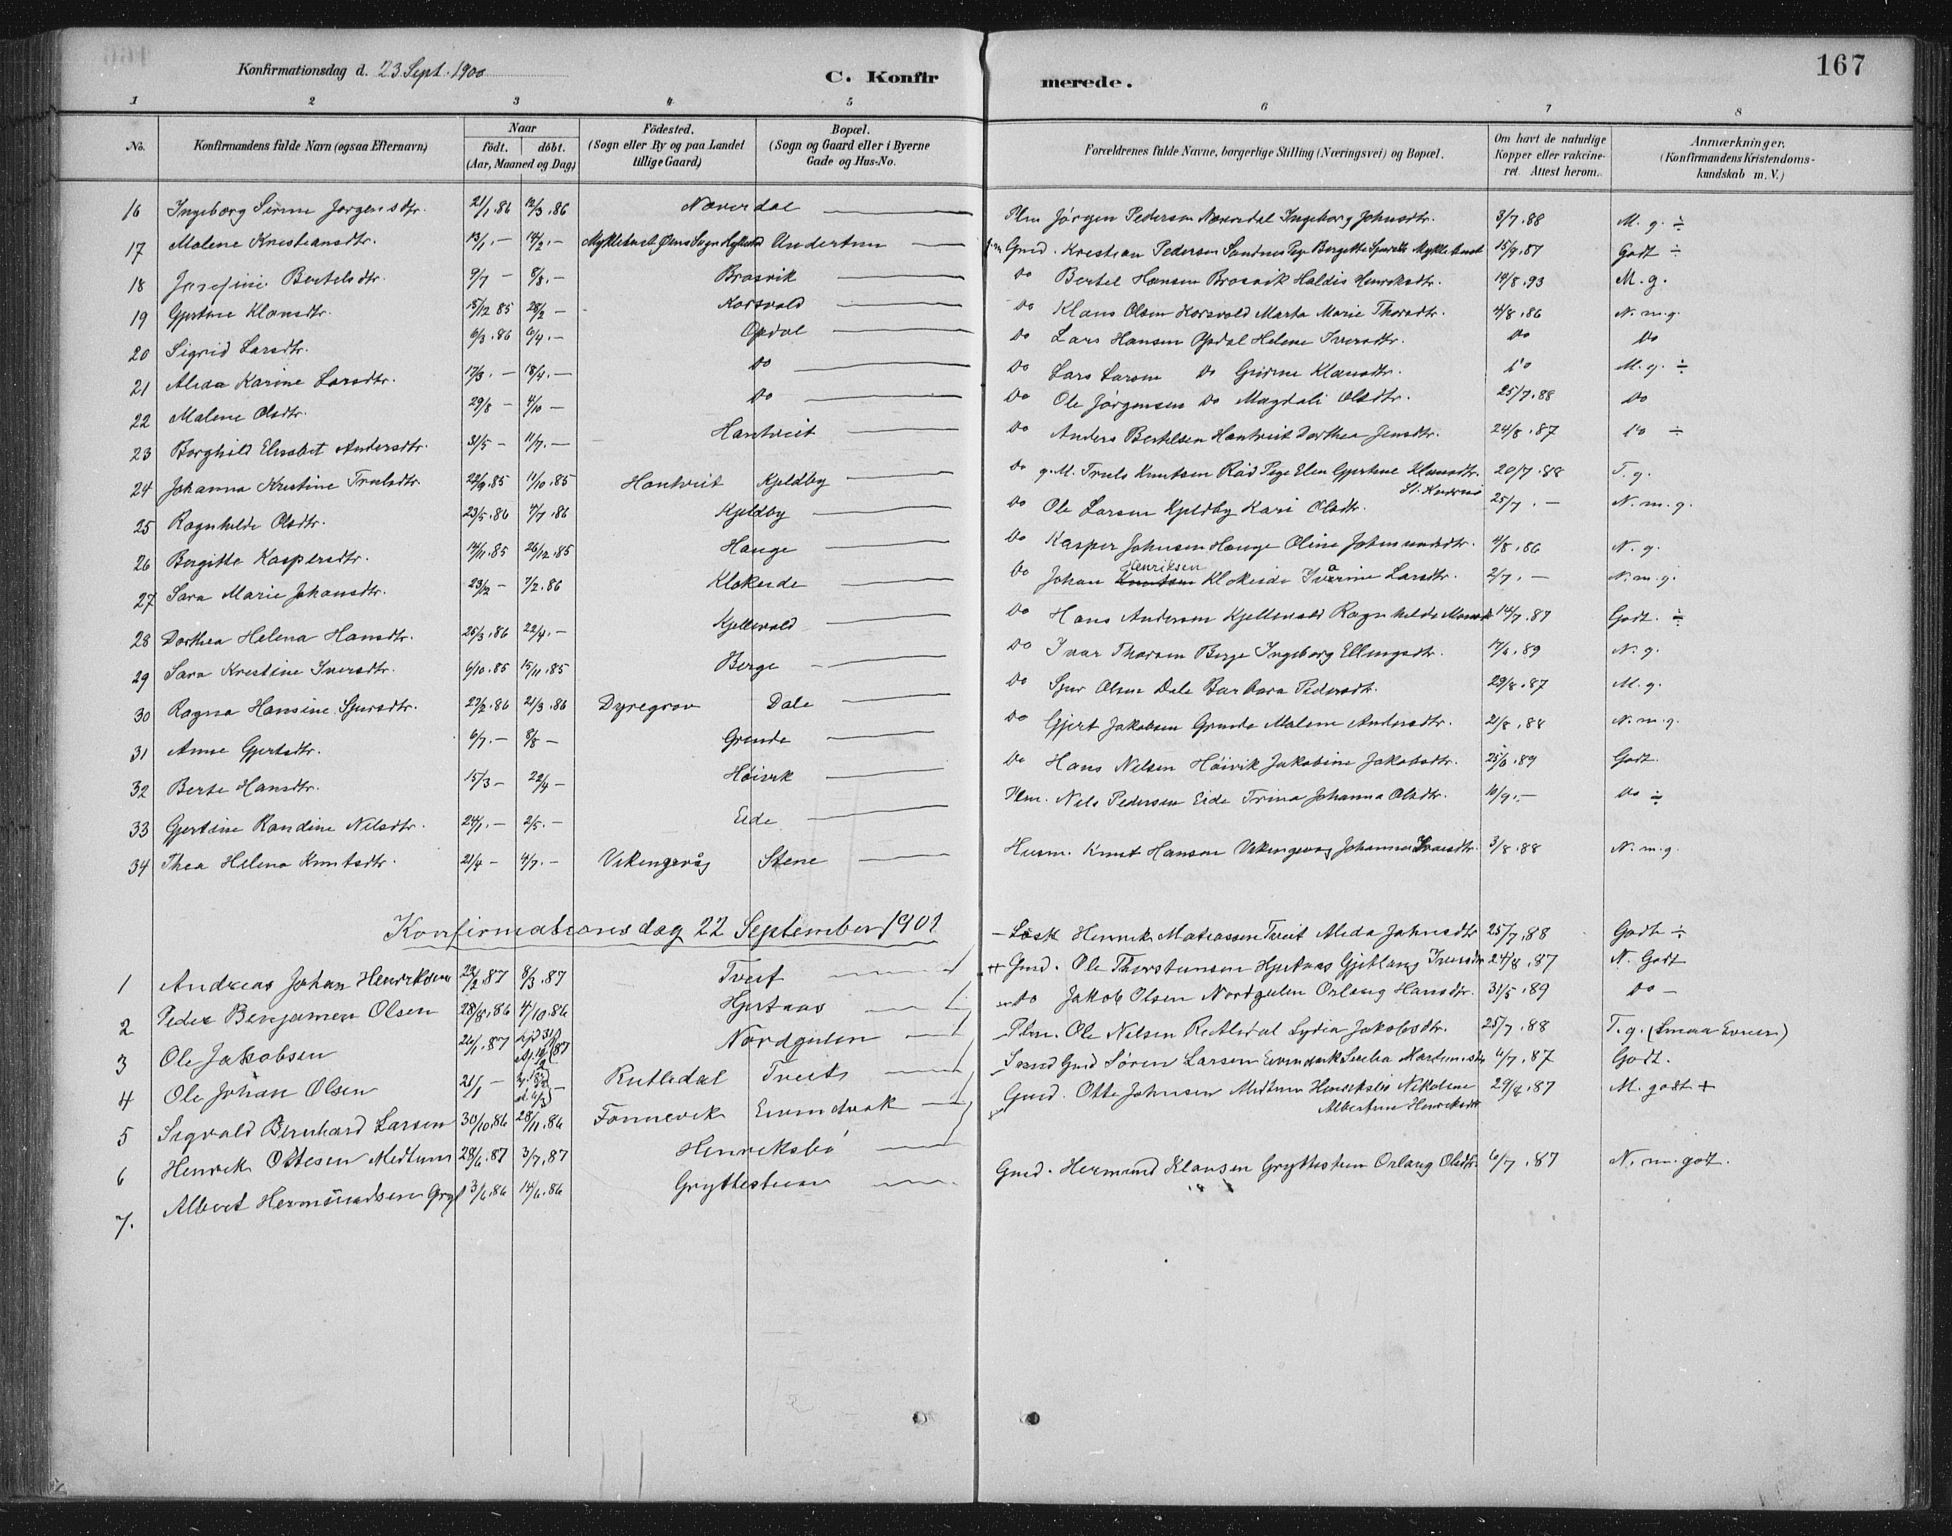 Konfirmationsdag d. 23 Sept. 1900 C. Konfirmerede. 167
1 2 3 4 5 6 7 8
No. Konfirmandens fulde Navn (ogsaa Efternavn) Naar födt. döbt. (Aar, Maaned og Dag) Födested. (Sogn eller By og paa Landet tillige Gaard) Bopæl. (Sogn og Gaard eller i Byerne Gade og Hus-No. Forældrenes fulde Navne, borgerlige Stilling (Næringsvei) og Bopæl. Om havt de naturlige Kopper eller vakcineret. Attest herom. Anmærkninger. (Konfirmandens Kristendomskundskab m. V.)
16 Ingeborg Sirine Jørgensdtr. 21/1.86 12/3.86 Næverdal Plm Jørgen Pedersen Næverdal Ingeborg Johnsdtr. 3/7.88 M. g. ÷
17 Malene Kristiansdtr. 13/1.— 14/2.— Andertun Gmd. Kristian Pedersen Sandnes 15/9.87 Godt ÷
18 Josefine Bertelsdtr. 9/7 — 8/8.— Brosvik Do Bertel Hansen Brosvik Haldis Henriksdtr. 14/8.93 M. g.
19 Gjertine Klausdtr. 15/12 85 28/2 — Korsvold Do Klaus Olsen Korsvold Marta Marie Thorsdtr. 4/8.86 N. m. g.
20 Sigrid Larsdtr. 6/3.86 6/4.— Opdal Do Lars Hansen Opdal Helene Iversdtr. Do Do
21 Alida Karine Larsdtr. 17/3.— 18/4.— Do Do Lars Larsen Do Gurine Klausdtr. Do M. g. ÷
22 Malene Olsdtr. 29/8 — 4/10 — Do Do Ole Jørgensen Do Magdali Olsdtr. 25/7.88 Do
23 Borghild Elisabet Andersdtr. 31/5 — 11/7.— Hantveit Do Anders Bertelsen Hantveit Dorthea Jensdtr. 24/8.87 Do ÷
24 Johanna Kristine Trulsdtr. 22/9.85 11/10.85 Hantveit Kjeldby Do g. M. Truls Knutsen Råd Pige Elen Gjertine Klausdtr. 20/7.88 T. g.
25 Ragnhilda Olsdtr. 23/5.86 7/7.86 Kjeldby Do Ole Larsen Kjeldby Kari Olsdtr. 25/7.— N. m. g.
26 Bergitte Kaspersdtr. 14/11.85 26/12.85 Hauge Do Kasper Johnsen Hauge Oline 4/8.86 N. g.
27 Sara Marie Johansdtr. 23/2 — 7/2.86 Klokeide Do Johan Henriksen Klokeide Larsdtr. 2/7.— N. m. g.
28 Dorthea Helena Hansdtr. 25/3.86 22/4.— Kjellevold Do Hans Andersen Kjellevold Ragnhilda 14/7.87 Godt. ÷
29 Sara Kristine Iversdtr. 6/10.85 15/11.85 Berge Do Ivar Thorsen Berge Ingeborg Ellingsdtr. 17/6.89 N. g.
30 Ragna Hansine Sjursdtr. 27/2.86 21/3.86 Dyregrov Dale Do Sjur Olsen Dale Barbara Pedersdtr. 29/8.87 M. g.
31 Anne Gjertsdtr. 6/7.— 8/8 — Grinde Do Gjert Jakobsen Grinde Malene Andersdtr. 21/8.88 N. m. g.
32 Berte Hansdtr. 15/3 — 22/4 — Høivik Do Hans Nilsen Høivik Jakobine Jakobsdtr. 25/6.89 Godt.
33 Gjertine Randine Nilsdtr. 24/1.— 2/5.— Eide Plm. Nils Pedersen Eide Trina Johanna Olsdtr. 10/9.— Do ÷
34 Thea Helena Knutsdtr. 21/4 — 4/7.— Vikingevåg Stene Husm. Knut Hansen Vikingevåg Johanna Iversdtr. 3/8.88 N. m. g.
Konfirmationsdag 22 September 1901
1 Andreas Johan Henriksen 22/2.87 8/3.87 Tveit Henrik Matiassen Tveit Alida Johnsdtr 25/7.88 Godt ÷
2 Peder Benjamen Olsen 28/8.86 4/10.86 Hjertaas Gmd. Ole Thorstensen Hjertaas Iversdtr 24/8.87 N. Godt
3 Ole Jakobsen 26/1.87 Nordgulen Do Jakob Olsen Nordgulen Orlaug Hansdtr. 31/5.89 Do —
4 Ole Johan Olsen 21/1 — Rutledal Tveit Plm. Ole Nilsen Rutledal Lydia Jakobsdtr. 25/7.88 T. g. (Smaa Evner)
5 Sigvald Bernhard Larsen 30/10.86 28/11.86 Fonnevik Eivindvik Gmd Søren Larsen Eivindvik 6/7.87 Godt.
6 Henrik Ottesen Midtun 28/6.87 3/7.87 Henriksbø Gmd. Otte Johnsen Midtun Henriksbø Nikoline Albertine Henriksdtr 29/8.87 M. godt +
7. Albert Hermundsen Gryt 3/6.86 14/6.86 Gryttestuen Gmd. Hermund Klausen Gryttestuen Orlaug Olsdtr. 6/7.87 N. m. godt.